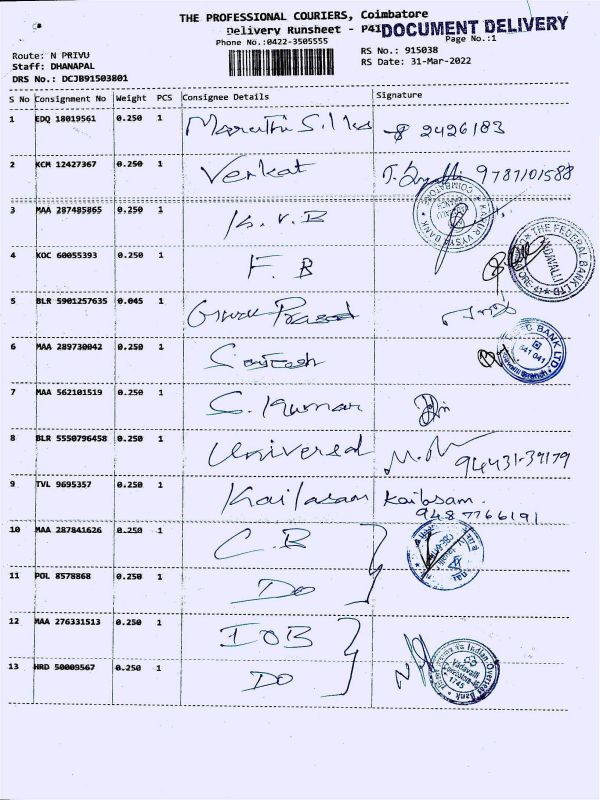 THE PROFESSIONAL COURIERS, Coimbatore
Delivery Runsheet - P41
DOCUMENT DELIVERY
Phone No.:0422-3505555
Page No.:1
Route: N PRIVU
Staff: DHANAPAL
DRS No.: DCJB91503801
RS No.: 915038
RS Date: 31-Mar-2022
S No Consignment No Weight PCS Consignee Details Signature
1 EDQ 18019561 0.250 1 Maruthi Silks 2426183
2 KCM 12427367 0.250 1 Venkat 9787101588
3 MAA 287485865 0.250 1 K.V.B
KARUR VYSYA BANK COIMBATORE
4 KOC 60055393 0.250 1 F.B
THE FEDERAL BANK LTD VADAVALLI
5 BLR 5901257635 0.045 1 Guru Prasad
6 MAA 289730042 0.250 1
BANK LTD. 641 041 Vadavalli Branch
7 MAA 562101519 0.250 1 S. Kumar
8 BLR 5550796458 0.250 1 Universal 94431-39179
9 TVL 9695357 0.250 1 Kailasam Kailasam.
9487766191
10 MAA 287841626 0.250 1 C.B
11 POL 8578868 0.250 1 Do
12 MAA 276331513 0.250 1 IOB
13 HRD 50009567 0.250 1 Do
Indian Overseas Bank Vadavalli 1745